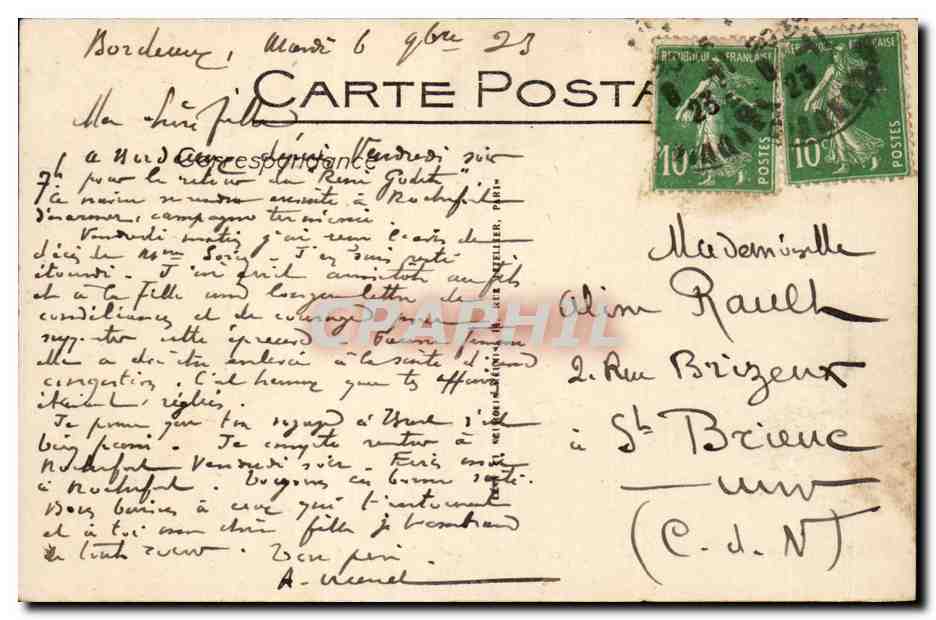 Bordeaux, Mardi 6 9bre 23
CARTE POSTA
RÉPUBLIQUE FRANÇAISE
RÉPUBLIQUE FRANÇAISE
10c POSTES
10c POSTES
Correspondance
Ma chère fille
à Bordeaux depuis Vendredi soir
7h pour le retour du "René Godet"
Ce navire se rendra ensuite à Rochefort
désarmer, campagne terminée.
Vendredi matin j'ai reçu l'avis de
décès de Mme . J'en suis resté
étourdi. J'ai écrit aussitôt au fils
et à la fille une longue lettre de
condoléances et de courage pour
supporter cette épreuve. femme
elle a dû être enlevée à la suite d'une
congestion. C'est heureux que tes affaires
étaient réglées.
Je pense que ton voyage à Brest s'est
bien passé. Je compte rentrer à
Rochefort Vendredi soir. Écris moi
à Rochefort. Toujours en bonne santé.
Bons baisers à ceux qui t'entourent
et à toi ma chère fille je t'embrasse
de tout cœur. Ton père
CRAPHIL
Mademoiselle
Aline Rault
2. Rue Brizeux
à St Brieuc
(C. d. N)